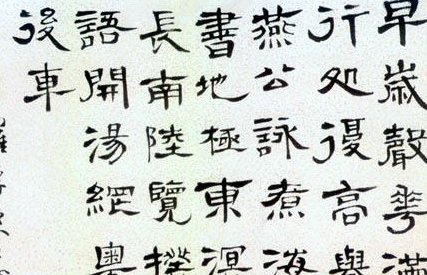 早歲聲華滿
行処復高
燕公詠煮海
書地極東溟
長南陸覽揆
語開湯網粵
後車